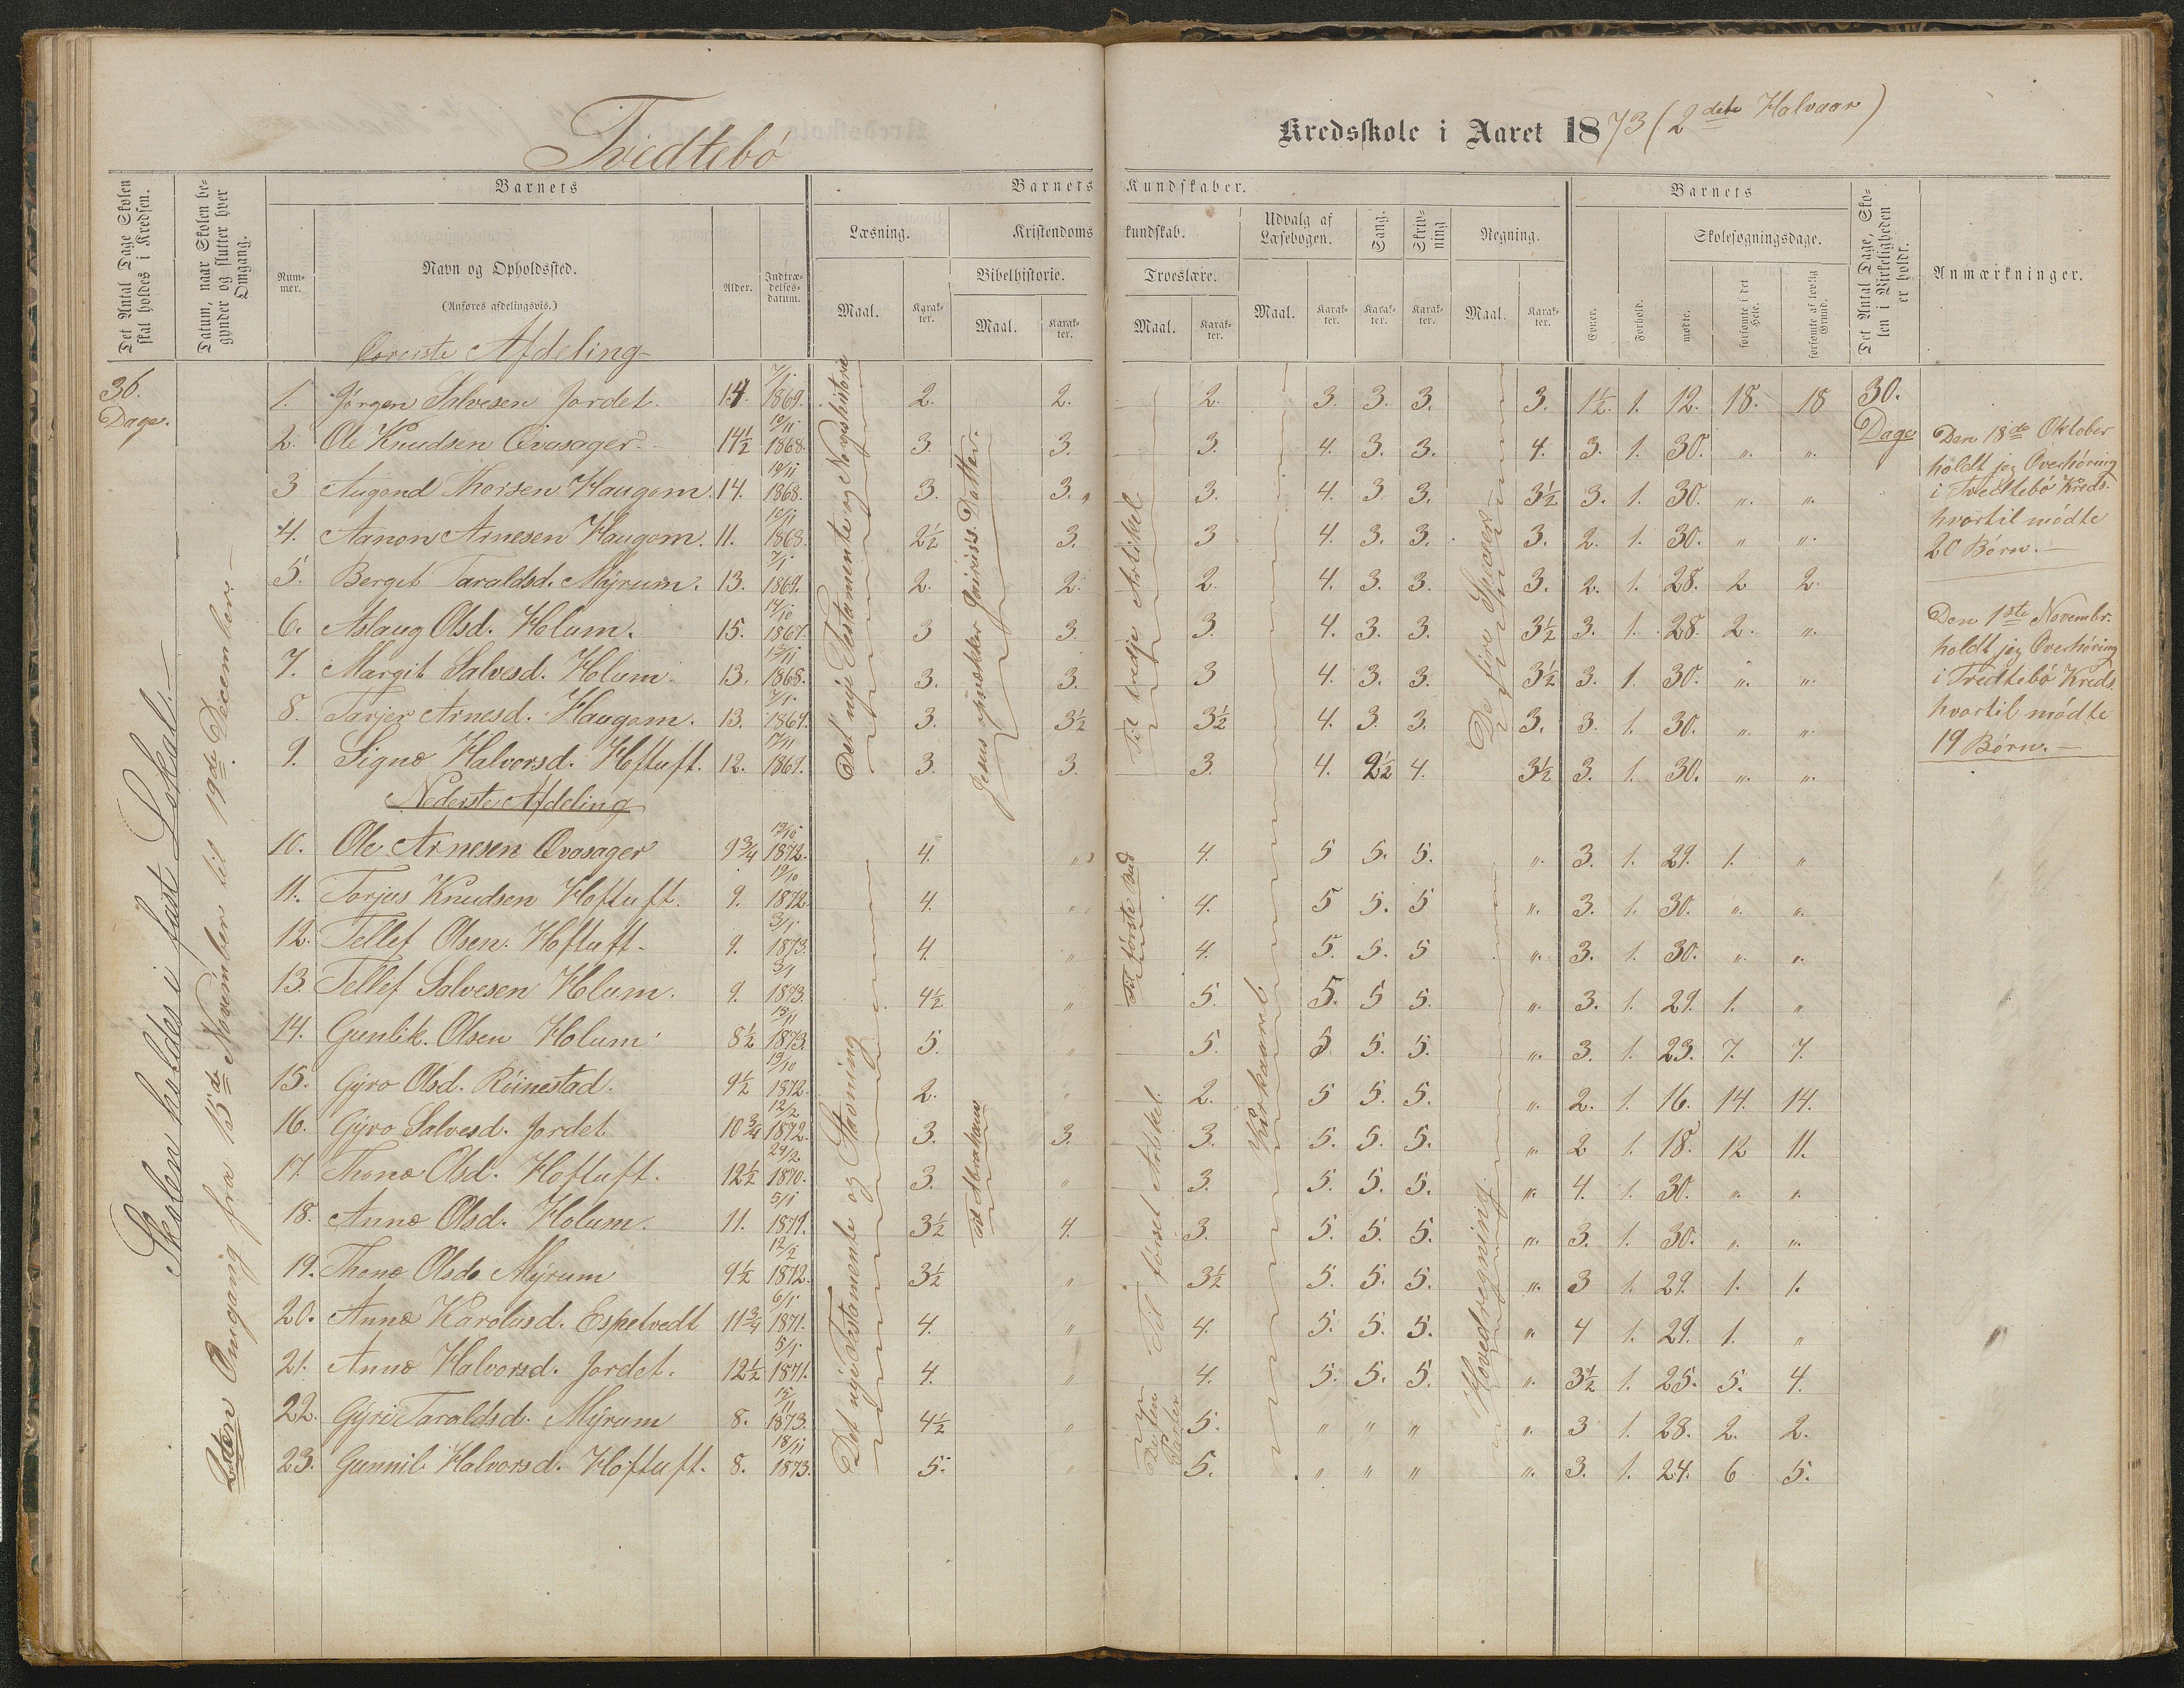 Tvedtebö
Kredsskole i Aaret 1873 (2det Halvaar)
Det Antal Dage Skolen skal holdes i Kredsen.
Datum, naar Skolen begynder og slutter hver Omgang.
Barnets
Barnets Kundskaber.
Barnets
Det Antal Dage, Skolen i Virkeligheden er holdt.
Anmærkninger.
Nummer.
Navn og Opholdssted.
(Anføres afdelingsvis.)
Alder.
Indtrædelsesdatum.
Læsning.
Kristendomskundskab.
Udvalg af Læsebogen.
Sang.
Skrivning
Regning.
Evner.
Forhold.
Skolesøgningsdage.
Bibelhistorie.
Troeslære.
Maal.
Karakter.
Maal.
Karakter.
Maal.
Karakter.
Maal.
Karakter.
Karakter.
Karakter.
Maal.
Karakter.
mødte.
forsømte i det Hele.
forsømte af lovlig Grund.
36 Dage.
Skolen holdes i fast Lokal.
2den Omgang fra 15de November til 19de December.
Øverste Afdeling
1. Jörgen Salvesen Jordet. 14. 7/1 1869. 2. 2. 2. 3. 3. 3. 3. 1½. 1. 12. 18. 18
2. Ole Knudsen Qvasager. 14½ 10/11 1868. 3. 3. 3. 4. 3. 3. 4. 3. 1. 30. „. „.
3 Augond Thorsen Haugom. 14. 10/11 1868. 3. 3. 3. 4. 3 3. 3½ 3. 1. 30. „. „.
4. Aanon Arnesen Haugom. 11. 10/11 1868. 2½ 3. 3 4. 3. 3. 3. 2. 1. 30. „ „.
5. Berget Taraldsd. Myrum. 13. 7/1 1869. 2. 2. 2. 4. 3. 3. 3. 2. 1. 28. 2 2
6. Aslaug Olsd. Holum. 15. 14/10 1867. 3 3. 3. 4. 3. 3. 3½ 3. 1. 28. 2. „.
7. Margit Salvesd. Holum. 13. 1868. 3. 3. 3 4. 3. 3. 3½ 3. 1. 30. „. „.
8. Tarjer Arnesd. Haugom. 13. 7/1 1869. 3. 3½ 3½ 4. 3. 3. 3. 3. 1. 30. „. „.
9. Signe Halvorsd. Hoftuft. 12. 17/11 1869. 3. 3. 3. 4. 2½ 4. 3½ 3. 1. 30. „. „.
Det nye Testamente og Norgeshistorie
Jesus opvækker Jairuss. Datter.
Til tredje Artikel
De fire Specier
30. Dage
Den 18de Oktober
holdt jeg Overhöring
i Tvedtebö Kreds.
hvortil mödte
20 Börn.
Den 1ste Novembr.
holdt jeg Overhöring
i Tvedtebö Kreds
hvortil mödte
19 Börn.
Nederste Afdeling
10. Ole Arnesen Qvasager 9¾ 19/10 1872. 4. „ 4. 5 5. 5. „. 3. 1. 29. 1. „
11. Torjus Knudsen Hoftuft. 9. 19/10 1872 4. „ 4. 5 5. 5 „. 3. 1. 30. „. „.
12. Tellef Olsen. Hoftuft. 9. 3/1 1873. 4. „ 4. 5. 5. 5 „. 3. 1. 30. „. „.
13. Tellef Salvesen Holum. 9. 3/1 1873. 4½ „ 5. 5. 5 5. „. 3. 1. 29. 1. „
14. Gunlik. Olsen Holum 8½ 15/11 1873. 5. „ 5. 5. 5. 5. „. 3. 1. 23. 7. 7.
15. Gyro Olsd. Röinestad. 9½ 19/10 1872. 2. „ 2. 5 5. 5. „. 2. 1. 16. 14. 14.
16. Gyro Salvesd. Jordet 10¾ 12/2 1872. 3. 3. 3. 5. 5. 5. „ 2 1. 18. 12 11.
17. Thone Olsd. Hoftuft. 12½ 24/2 1870. 3. „ 3. 5. 5. 5. „. 4. 1. 30. „. „.
18. Anne Olsd. Holum. 11. 5/1 1871. 3½ 4. 3. 5. 5. 5. „. 3. 1. 30. „. „.
19. Thone Olsd. Myrum 9½ 12/2 1872. 3½ „ 3½ 5. 5. 5. „. 3 1. 29. 1. 1.
20. Anne Karolusd. Espetvedt 11¾ 6/1 1871. 4. „ 4. 5. 5. 5. „ 4 1. 29. 1. „
21. Anne Halvorsd. Jordet. 12½ 5/1 1871. 4. „ 4. 5. 5. 5. „. 3½ 1. 25. 5. 4.
22. Gyri Taraldsd. Myrum 8. 15/11 1873. 4½ „ 5. „ „ „ „. 3 1. 28. 2. 2.
23. Gunnil Halvorsd. Hoftuft. 8. 18/11 1873. 5. „ 5. „ „ „ „. 3. 1. 24. 6 5.
Det nye Testamente og Stavning
Til Abraham
Til förste Bud
Til förset Artikkel
Kirkeaaret
Hovedregning.